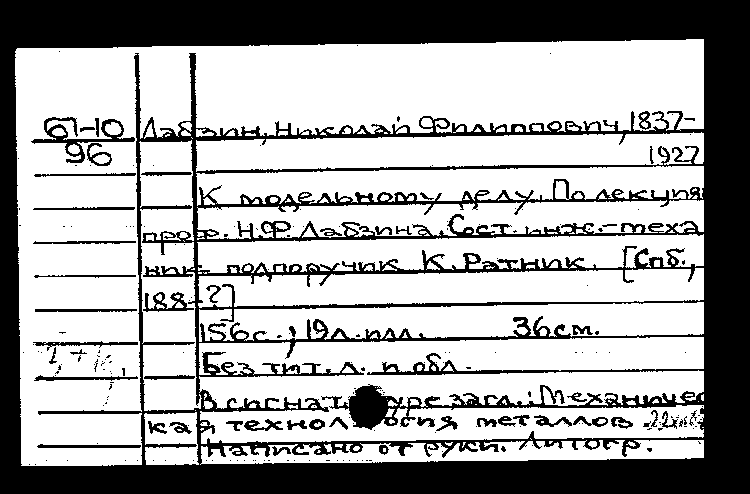 61-10 Лабзин, Николай Филиппович, 1837-
96 1927
К модельному делу. По лекция
проф. Н.Ф. Лабзина. Сост. инж.-меха
ник- подпоручик К. Ратник. [Спб.,
188-?]
156с.; 19л. илл. 36см.
Без тит. л. и обл.
В сигнатуре загл.: Механичес
кая технология металлов.
Написано от руки. Литогр.